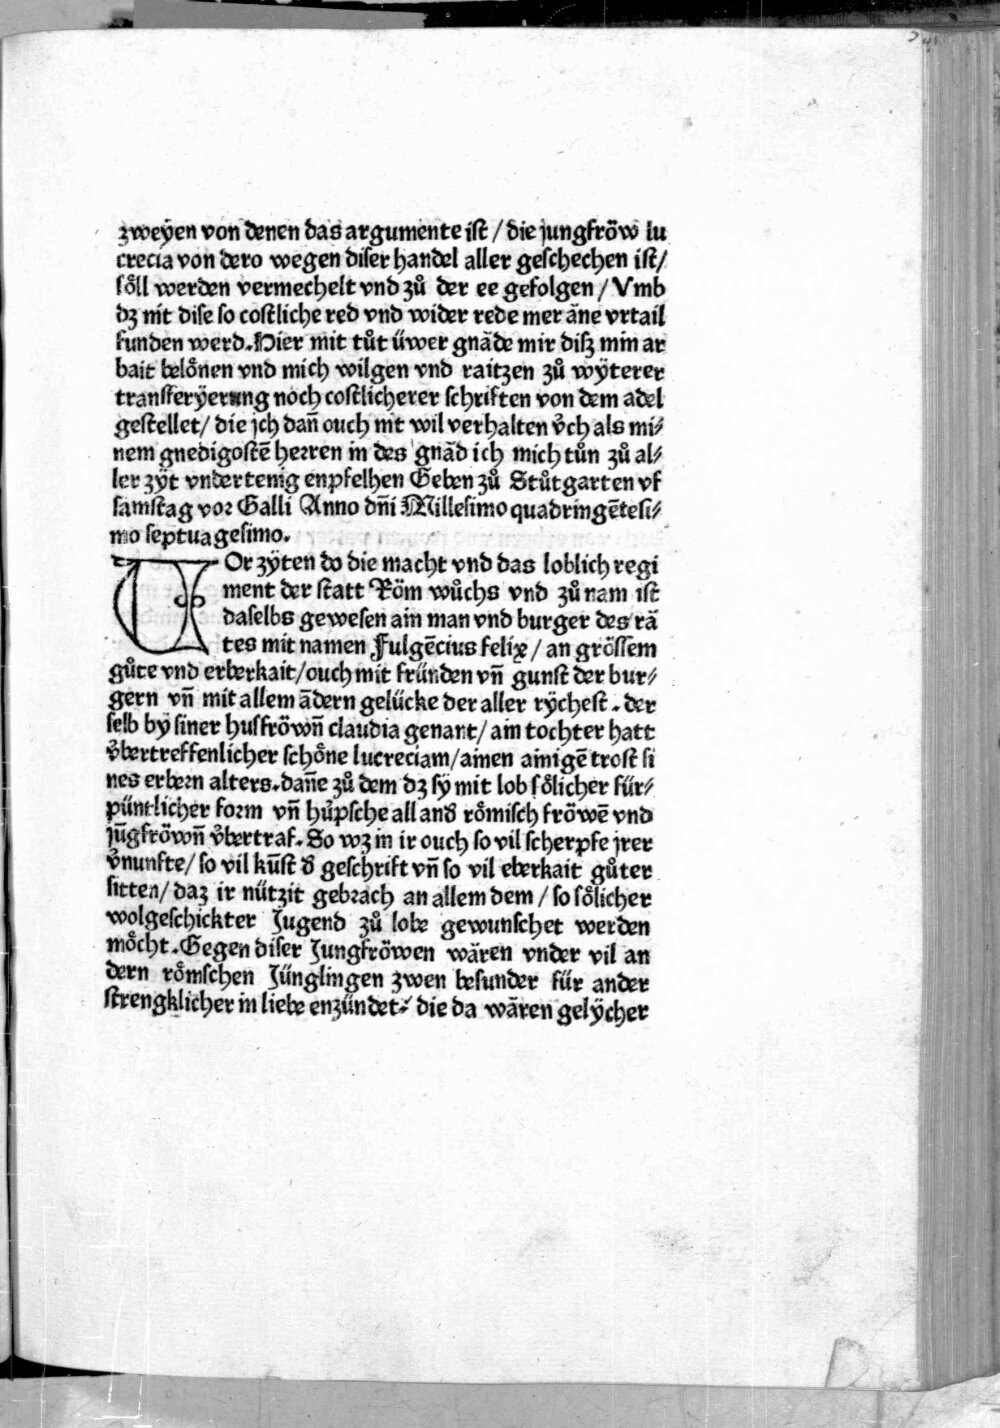 zweÿen von denen das argumente ist / die jungfröw lu
crecia von dero wegen diser handel aller geschechen ist/
soͤll werden vermechelt vnd zuͦ der ee gefolgen / Vmb
dz nit dise so costliche red vnd wider rede mer āne vrtail
funden werd. Hier mit tuͦt üwer gnāde mir disz min ar
bait beloͤnen vnd mich wilgen vnd raitzen zuͦ wÿterer
transferÿerung noch costlicherer schriften von dem adel
gestellet/ die jch dañ ouch nit wil verhalten v̊ch als mi⸗
nem gnedigostē herren in des gnād ich mich tuͦn zuͦ al⸗
ler zÿt vndertenig enpfelhen Geben zuͦ Stuͦtgarten vf
samstag vor Galli Anno dñi Millesimo quadringētesi⸗
mo septuagesimo.
VOr zÿten do die macht vnd das loblich regi
ment der statt Röm wuͦchs vnd zuͦ nam ist
daselbs gewesen ain man vnd burger des rā
tes mit namen Fulgēcius felix/ an grössem
guͦte vnd erberkait/ouch mit fründen vñ gunst der bur⸗
gern vñ mit allem ādern gelücke der aller rÿchest. der
selb bÿ siner husfröwñ claudia genant/ ain tochter hatt
v̊bertreffenlicher schoͤne lucreciam/ainen ainigē trost si
nes erbern alters. dañe zuͦ dem dz sÿ mit lob soͤlicher für⸗
püntlicher form vñ huͤpsche all and̕ roͤmisch fröwē vnd
jūgfröwñ v̊bertraf. So wz in ir ouch so vil scherpfe jrer
v̊nunfte/ so vil kūst d̕ geschrift vñ so vil eberkait guͦter
sitten/ daz ir nützit gebrach an allem dem / so soͤlicher
wolgeschickter Jugend zuͦ lobe gewunschet werden
moͤcht. Gegen diser Jungfröwen wāren vnder vil an
dern roͤmschen Jünglingen zwen besunder für ander
strengklicher in liebe enzündet⸗ die da wāren gelÿcher